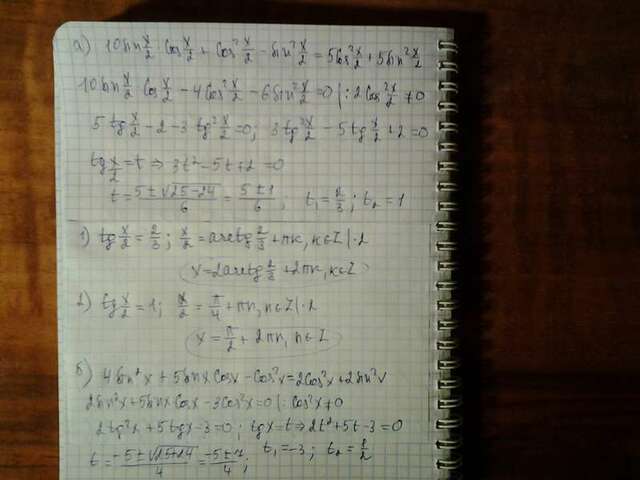 а) 10sin x/2 cos x/2 + cos² x/2 - sin² x/2 = 5cos² x/2 + 5sin² x/2
10sin x/2 cos x/2 - 4cos² x/2 - 6sin² x/2 = 0 |: 2cos² x/2 ≠ 0
5tg x/2 - 2 - 3tg² x/2 = 0; 3tg² x/2 - 5tg x/2 + 2 = 0
tg x/2 = t ⇒ 3t² - 5t + 2 = 0
t = (5 ± √(25-24))/6 = (5 ± 1)/6; t₁ = 2/3; t₂ = 1
1) tg x/2 = 2/3; x/2 = arctg 2/3 + πk, k∈Z |·2
x = 2arctg 2/3 + 2πk, k∈Z
2) tg x/2 = 1; x/2 = π/4 + πn, n∈Z |·2
x = π/2 + 2πn, n∈Z
б) 4sin²x + 5sinx cosx - cos²x = 2cos²x + 2sin²x
2sin²x + 5sinx cosx - 3cos²x = 0 |: cos²x ≠ 0
2tg²x + 5tgx - 3 = 0; tgx = t ⇒ 2t² + 5t - 3 = 0
t = (-5 ± √(25+24))/4 = (-5 ± 7)/4; t₁ = -3; t₂ = 1/2